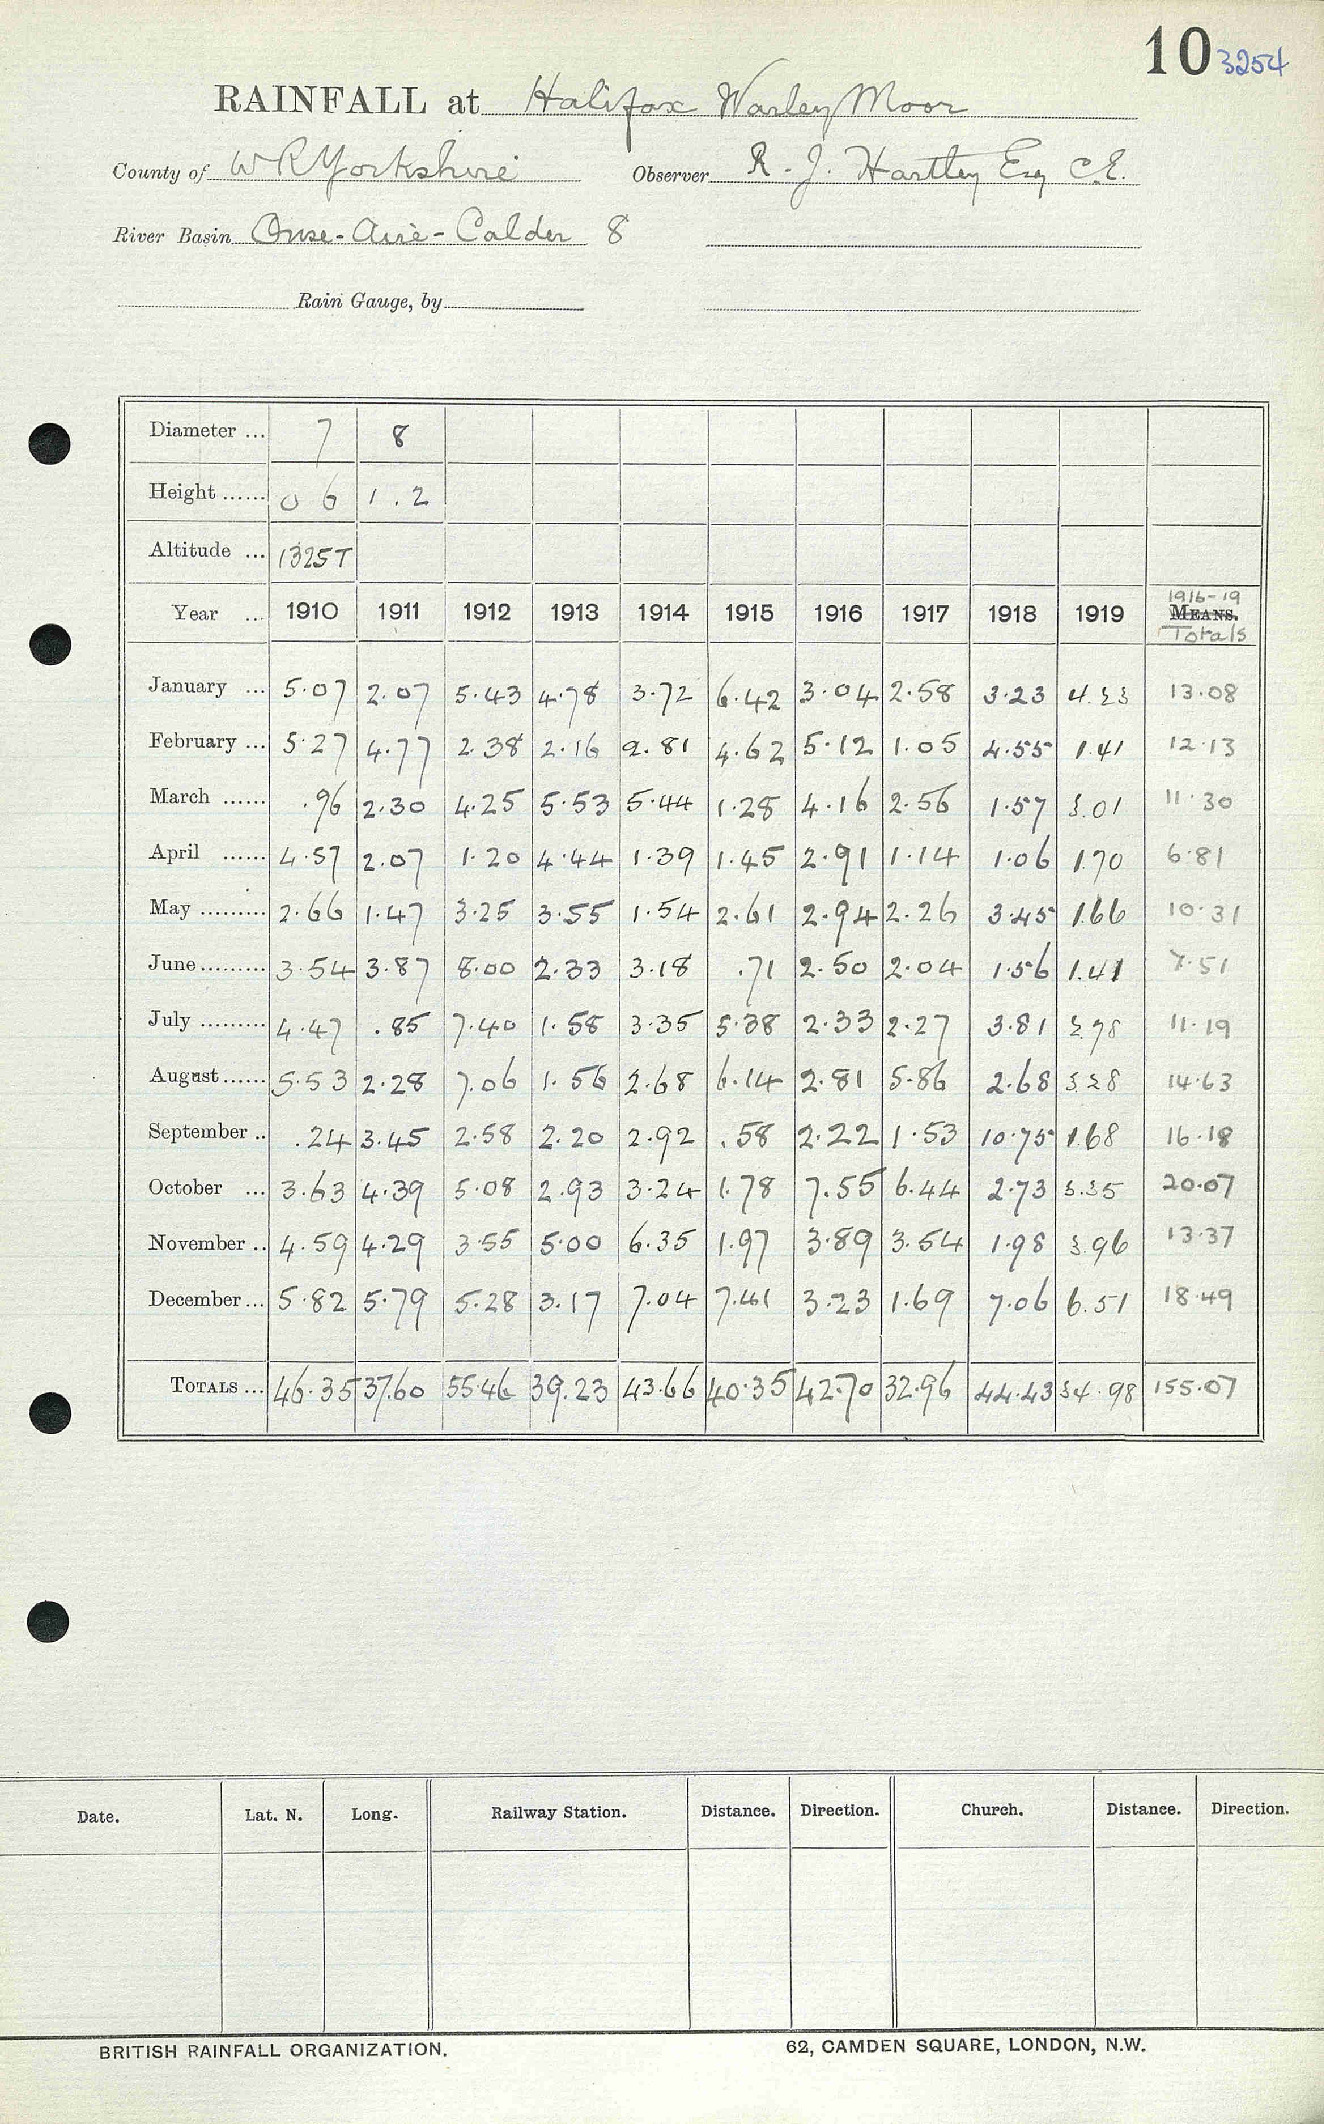 10 3254
RAINFALL at Halifax Warley Moor
County of W R Yorkshire Observer R. J. Hartley Esq C.E.
River Basin Ouse-Aire-Calder 8
Rain Gauge, by
Diameter ... 7 8
Height ...... 0 6 1.2
Altitude ... 1325T
1916-19
Year ... 1910 1911 1912 1913 1914 1915 1916 1917 1918 1919 MEANS.
Totals
January ... 5.07 2.07 5.43 4.78 3.72 6.42 3.04 2.58 3.23 4.23 13.08
February ... 5.27 4.77 2.38 2.16 2.81 4.62 5.12 1.05 4.55 1.41 12.13
March ...... .96 2.30 4.25 5.53 5.44 1.28 4.16 2.56 1.57 3.01 11.30
April ...... 4.57 2.07 1.20 4.44 1.39 1.45 2.91 1.14 1.06 1.70 6.81
May ......... 2.66 1.47 3.25 3.55 1.54 2.61 2.94 2.26 3.45 1.66 10.31
June ......... 3.54 3.87 8.00 2.33 3.18 .71 2.50 2.04 1.56 1.41 7.51
July ......... 4.47 .85 7.40 1.58 3.35 5.38 2.33 2.27 3.81 2.78 11.19
August ...... 5.53 2.28 7.06 1.56 2.68 6.14 2.81 5.86 2.68 3.28 14.63
September .. .24 3.45 2.58 2.20 2.92 .58 2.22 1.53 10.75 1.68 16.18
October ... 3.63 4.39 5.08 2.93 3.24 1.78 7.55 6.44 2.73 3.35 20.07
November .. 4.59 4.29 3.55 5.00 6.35 1.97 3.89 3.54 1.98 3.96 13.37
December ... 5.82 5.79 5.28 3.17 7.04 7.41 3.23 1.69 7.06 6.51 18.49
TOTALS ... 46.35 37.60 55.46 39.23 43.66 40.35 42.70 32.96 44.43 34.98 155.07
Date. Lat. N. Long. Railway Station. Distance. Direction. Church. Distance. Direction.
BRITISH RAINFALL ORGANIZATION. 62, CAMDEN SQUARE, LONDON, N.W.